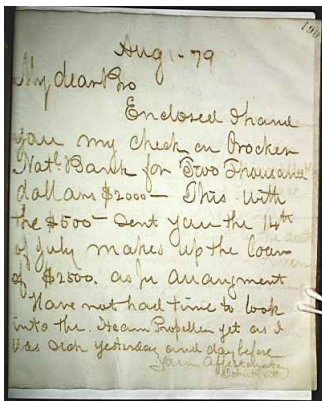 Aug 1 - 79
My dear Bro
Enclosed I hand
you my check on Crocker
Natl Bank for Two Thousand
dollars $2000 - This with
the $500 sent you the 14th
of July makes up the loan
of $2500. as pr arrangment
Have not had time to look
into the Steam Propeller yet as I
was sick yesterday and day before
Yours Affectionately